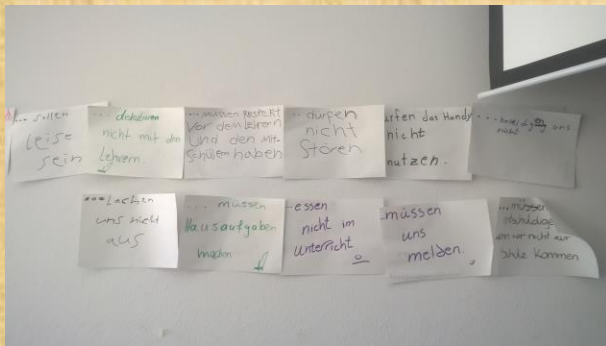 ... sollen
leise
sein
... diskutieren
nicht mit den
Lehrern.
... müssen Respekt
Vor dem Lehrern
Und den Mit-
Schülern haben
... dürfen
nicht
Stören
das Handy
nicht
nutzen.
uns
nicht
... Lachen
uns nicht
aus
... müssen
Hausaufgaben
machen
... essen
nicht im
Unterricht
... müssen
uns
melden.
... müssen
wir nicht zur
kommen